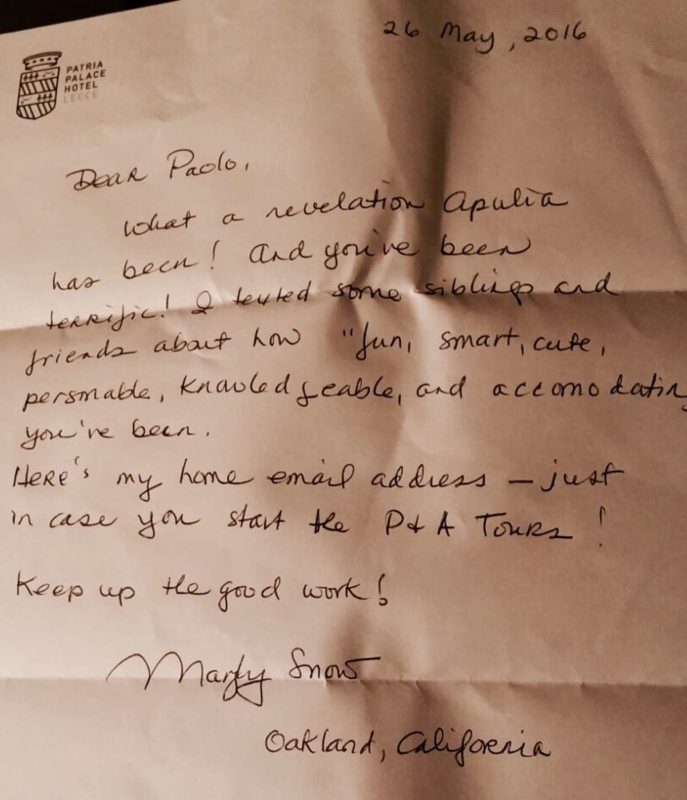 26 May, 2016
PATRIA
PALACE
HOTEL
LECCE
Dear Paolo,
What a revelation Apulia
has been! And you've been
terrific! I texted some siblings and
friends about how "fun, smart, cute,
persmable, knowledgeable, and accomodating
you've been.
Here's my home email address – just
in case you start the P & A Tours!
Keep up the good work!
Snow
Oakland, California